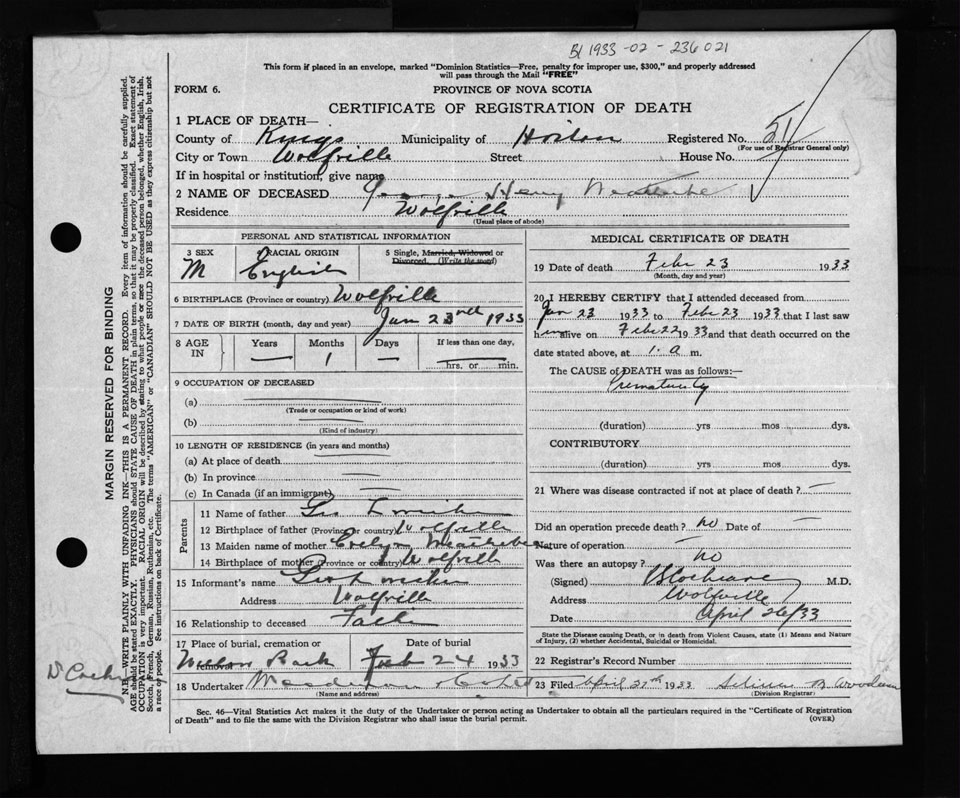 B1 1933-02-236021
This form if placed in an envelope, marked "Dominion Statistics—Free, penalty for improper use, $300," and properly addressed
will pass through the Mail "FREE"
FORM 6. PROVINCE OF NOVA SCOTIA
CERTIFICATE OF REGISTRATION OF DEATH
1 PLACE OF DEATH—
County of Kings Municipality of Horton Registered No. 51
(For use of Registrar General only)
City or Town Wolfville Street House No.
If in hospital or institution, give name
2 NAME OF DECEASED George Henry Weatherbe
Residence Wolfville
(Usual place of abode)
PERSONAL AND STATISTICAL INFORMATION
3 SEX 4 RACIAL ORIGIN 5 Single, Married, Widowed or
M English Divorced. (Write the word)
6 BIRTHPLACE (Province or country) Wolfville
7 DATE OF BIRTH (month, day and year) Jan 23rd 1933
8 AGE Years Months Days If less than one day,
IN — 1 — hrs. or min.
9 OCCUPATION OF DECEASED
(a)
(Trade or occupation or kind of work)
(b)
(Kind of industry)
10 LENGTH OF RESIDENCE (in years and months)
(a) At place of death
(b) In province
(c) In Canada (if an immigrant)
Parents
11 Name of father Geo
12 Birthplace of father (Province or country) Wolfville
13 Maiden name of mother Evelyn Weatherbe
14 Birthplace of mother (Province or country) Wolfville
15 Informant's name Geo
Address Wolfville
16 Relationship to deceased Father
17 Place of burial, cremation or Date of burial
Feb 24 1933
18 Undertaker
(Name and address)
MEDICAL CERTIFICATE OF DEATH
19 Date of death Febr 23 1933
(Month, day and year)
20 I HEREBY CERTIFY that I attended deceased from
Jan 23 1933 to Febr 23 1933 that I last saw
him alive on Febr 22 1933 and that death occurred on the
date stated above, at 1. a m.
The CAUSE of DEATH was as follows:—
Prematurity
(duration) yrs mos dys.
CONTRIBUTORY
(duration) yrs mos dys.
21 Where was disease contracted if not at place of death? —
Did an operation precede death? no Date of —
Nature of operation —
Was there an autopsy? no
(Signed) Cochrane M.D.
Address Wolfville
Date April 26/33
State the Disease causing Death, or in death from Violent Causes, state (1) Means and Nature
of Injury, (2) whether Accidental, Suicidal or Homicidal.
22 Registrar's Record Number
23 Filed April 27th 1933
(Division Registrar)
Sec. 46—Vital Statistics Act makes it the duty of the Undertaker or person acting as Undertaker to obtain all the particulars required in the "Certificate of Registration
of Death" and to file the same with the Division Registrar who shall issue the burial permit. (OVER)
MARGIN RESERVED FOR BINDING
N.B.—WRITE PLAINLY WITH UNFADING INK—THIS IS A PERMANENT RECORD. Every item of information should be carefully supplied.
AGE should be stated EXACTLY. PHYSICIANS should STATE CAUSE OF DEATH in plain terms, so that it may be properly classified. Exact statement of
OCCUPATION is very important. RACIAL ORIGIN will be described by stating to what people or race the deceased person belonged, whether English, Irish,
Scotch, French, German, Russian, Ruthenian, etc. The terms "AMERICAN" or "CANADIAN" SHOULD NOT BE USED as they express citizenship but not
a race or people. See instructions on back of Certificate.